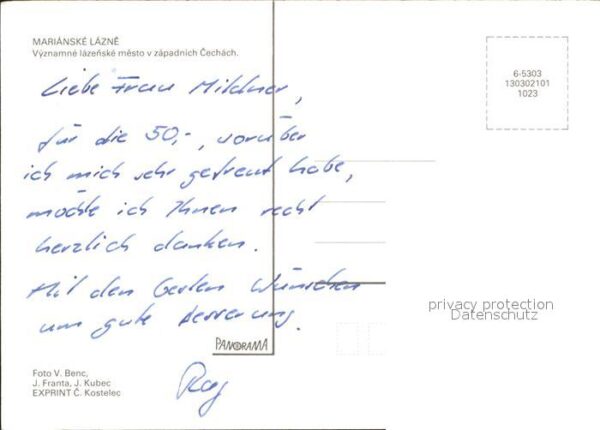 MARIÁNSKÉ LÁZNĚ
Významné lázeňské město v západních Čechách.
6-5303
130302101
1023
Liebe Frau Mildner,
für die 50,-, worüber
ich mich sehr gefreut habe,
möchte ich Ihnen recht
herzlich danken.
Mit den besten Wünschen
um gute Besserung.
privacy protection
Datenschutz
PANORAMA
Foto V. Benc,
J. Franta, J. Kubec
EXPRINT Č. Kostelec